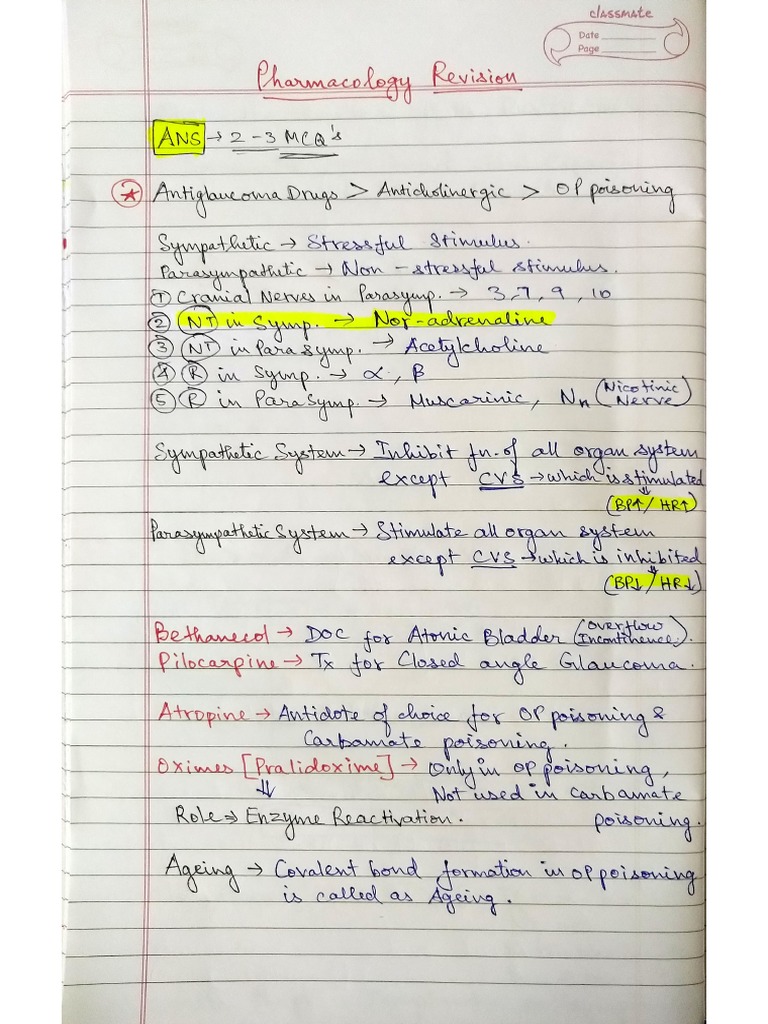 classmate
Date
Page
Pharmacology Revision
ANS → 2-3 MCQ's
* Antiglaucoma Drugs > Anticholinergic > OP poisoning
Sympathetic → Stressful Stimulus.
Parasympathetic → Non-stressful stimulus.
① Cranial Nerves in Parasymp. → 3, 7, 9, 10
② NT in Symp. → Nor-adrenaline
③ NT in ParaSymp. → Acetylcholine
④ R in Symp. → α, β
⑤ R in ParaSymp. → Muscarinic, Nn (Nicotinic Nerve)
Sympathetic System → Inhibit fn. of all organ system
except CVS → which is stimulated
(BP↑/HR↑)
Parasympathetic System → Stimulate all organ system
except CVS → which is inhibited
(BP↓/HR↓)
Bethanecol → DOC for Atonic Bladder (Overflow Incontinence).
Pilocarpine → Tx for Closed angle Glaucoma.
Atropine → Antidote of choice for OP poisoning &
Carbamate poisoning.
Oximes [Pralidoxime] → Only in OP poisoning,
⇓ Not used in carbamate
Role ⇒ Enzyme Reactivation. poisoning.
Ageing → Covalent bond formation in OP poisoning
is called as Ageing.